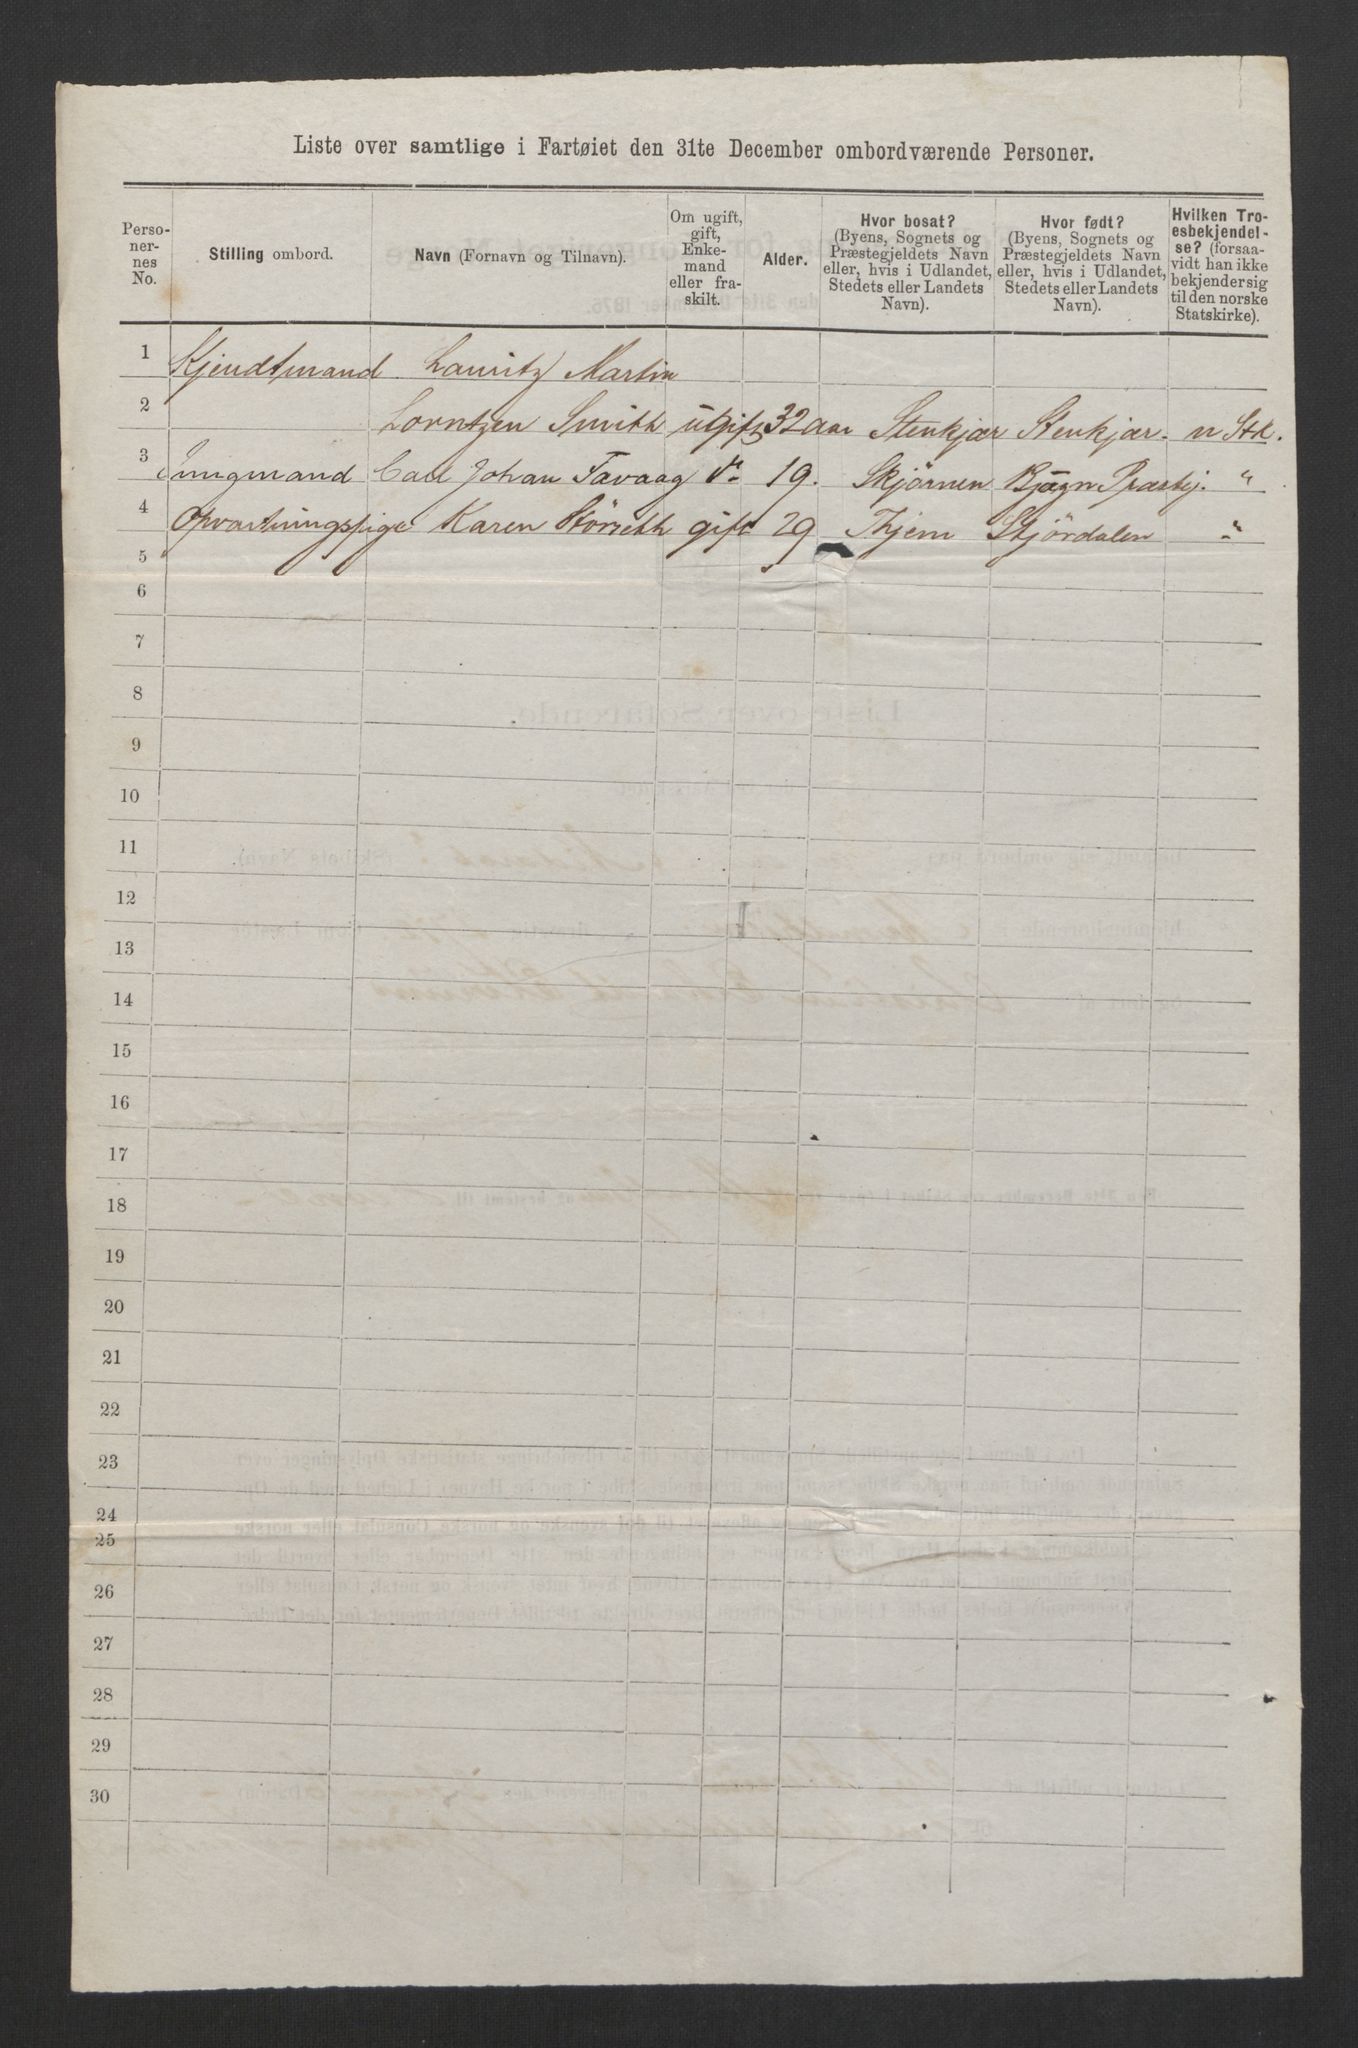 Liste over samtlige i Fartøiet den 31te December ombordværende Personer.
Perso-
ner-
nes
No.
Stilling ombord.
Navn (Fornavn og Tilnavn).
Om ugift,
gift,
Enke-
mand
eller fra-
skilt.
Alder.
Hvor bosat?
(Byens, Sognets og
Præstegjeldets Navn
eller, hvis i Udlandet,
Stedets eller Landets
Navn).
Hvor født?
(Byens, Sognets og
Præstegjeldets Navn
eller, hvis i Udlandet,
Stedets eller Landets
Navn).
Hvilken Tro-
esbekjendel-
se? (forsaa-
vidt han ikke
bekjender sig
til den norske
Statskirke).
1 Kjendtmand Lauritz Martin
2 Lorntzen Smith ugift 32 aar Stenkjær Stenkjær. n Stk.
3 Jungmand Carl Johan Tavaag do 19. Skjörnen Bjugn Præstgj. "
4 Opvartningspige Karen gift 29 Thjem Stjördalen "
5
6
7
8
9
10
11
12
13
14
15
16
17
18
19
20
21
22
23
24
25
26
27
28
29
30